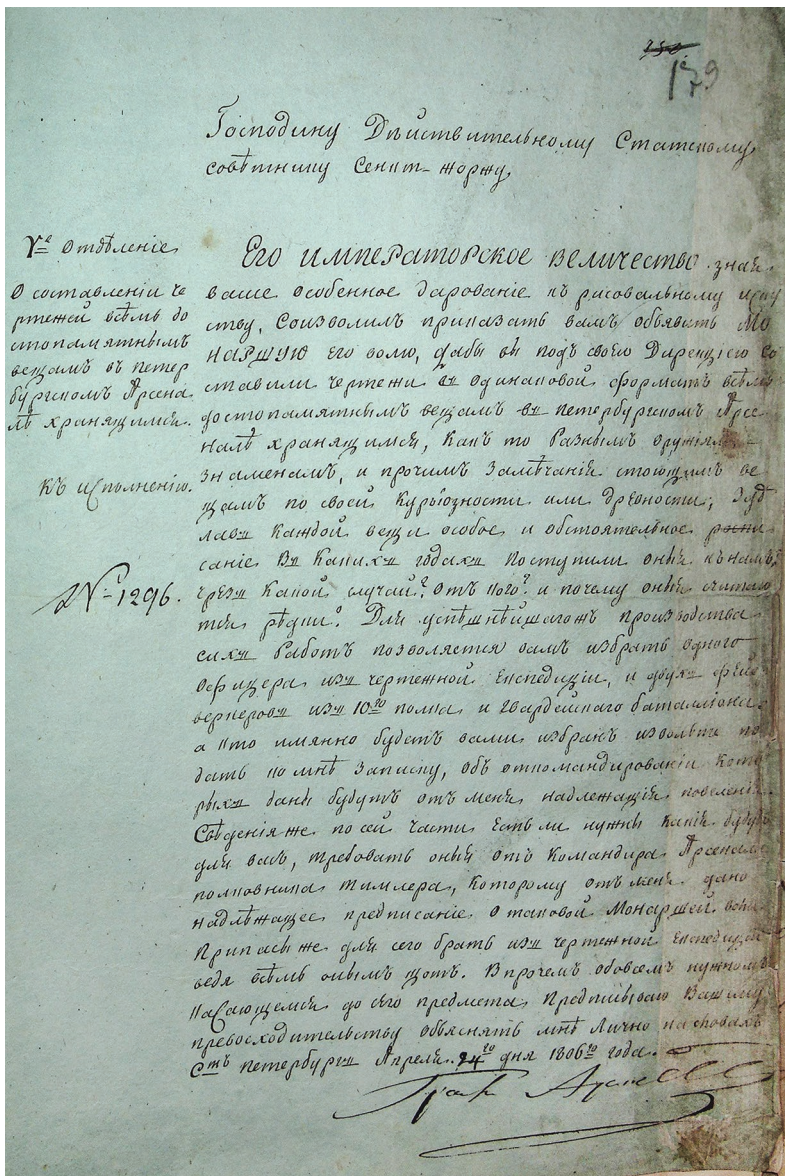 179
Господину Дѣйствительному Статскому
совѣтнику Сент-жоржу
Его императорское величество зная
ваше особенное дарование къ рисовальному иску
ству, соизволилъ приказать вамъ объявить Мо
наршую Его волю, дабы вы подъ своею Дирекциею со
ставили чертежи въ одинаковой форматъ всѣмъ
достопамятнымъ вещамъ въ петербургскомъ Арсе
налѣ хранящимся, какъ то Разнымъ оружіямъ
знаменамъ, и прочимъ Замѣчанія стоющимъ ве
щамъ по своей Курьозности или древности; здѣ
лавъ каждой вещи особое и обстоятельное роспи
саніе Въ какихъ годахъ поступили оныя къ намъ?
чрезъ какой случай? отъ кого? и почему оныя считаю
тся рѣдки? Для успѣшнѣйшагожъ производства
сихъ Работъ позволяется вамъ избрать одного
Офицера изъ чертежной Експедиціи, и двухъ фей
верверковъ изъ 10го полка и Гвардейскаго баталиона
а кто имянно будетъ вами избранъ извольте по
дать ко мнѣ Записку, объ откомандированіи кото
рыхъ даны будутъ отъ меня надлежащія повеления
Свѣденія же по сей части Естьли нужны какія будутъ
для васъ, требовать оныя отъ Командира Арсенала
полковника тиллера, которому отъ меня дано
надлѣжащее предписаніе о таковой Монаршей волѣ
Припасы же для сего брать изъ чертежной Експедиціи
ведя всѣмъ онымъ щотъ. Впрочемъ обовсемъ нужномъ
касающемся до сего предмета Предписываю Вашему
превосходительству объяснять мнѣ Лично на словахъ
Стъ петербургъ Апреля 24го дня 1806го года.
Графъ
Vе Отдѣленіе
О составленіи че
ртежей всѣмъ до
стопамятнымъ
вещамъ въ петер
бургскомъ Арсена
лѣ хранящимся.
Къ исполненію.
№ 1296.